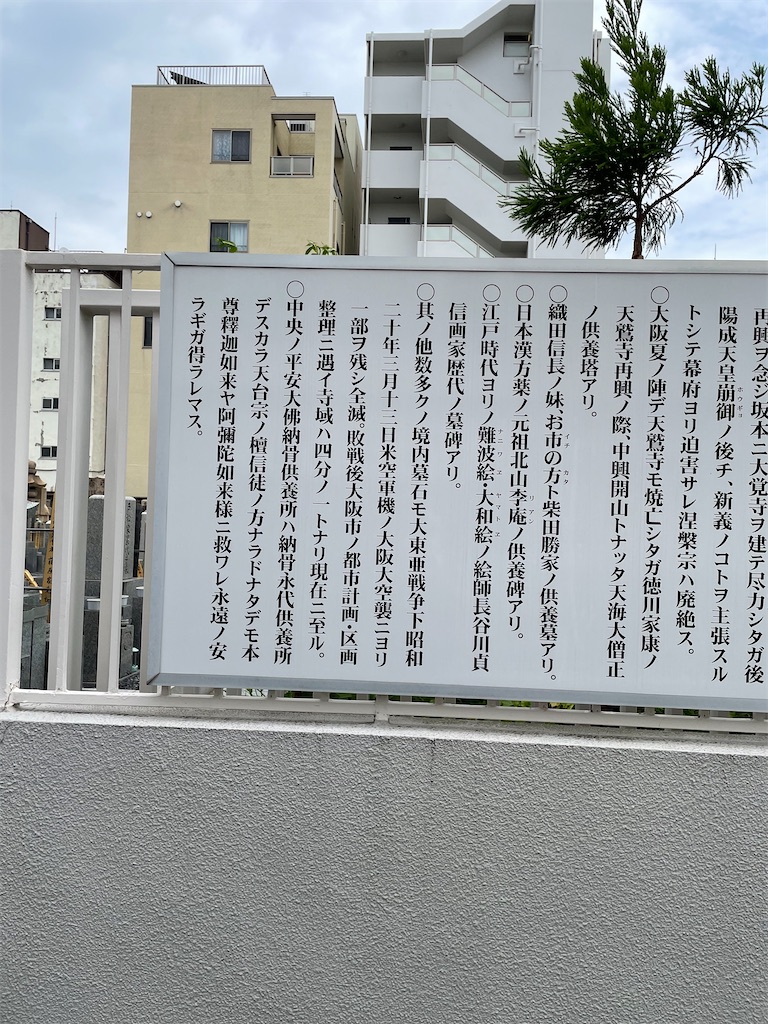 再興ヲ念ジ坂本ニ大覚寺ヲ建テ尽力シタガ後
陽成天皇崩御ノ後チ、新義ノコトヲ主張スル
ホウギョ
トシテ幕府ヨリ迫害サレ涅槃宗ハ廃絶ス。
○大阪夏ノ陣デ天鷲寺モ焼亡シタガ徳川家康ノ
天鷲寺再興ノ際、中興開山トナッタ天海大僧正
ノ供養塔アリ。
○織田信長ノ妹、お市の方ト柴田勝家ノ供養墓アリ。
イチ カタ
○日本漢方薬ノ元祖北山李庵ノ供養碑アリ。
リアン
○江戸時代ヨリノ難波絵・大和絵ノ絵師長谷川貞
ナニワヱ ヤマトヱ
信画家歴代ノ墓碑アリ。
○其ノ他数多クノ境内墓石モ大東亜戦争下昭和
二十年三月十三日米空軍機ノ大阪大空襲ニヨリ
一部ヲ残シ全滅。敗戦後大阪市ノ都市計画・区画
整理ニ遇イ寺域ハ四分ノ一トナリ現在ニ至ル。
○中央ノ平安大佛納骨供養所ハ納骨永代供養所
デスカラ天台宗ノ檀信徒ノ方ナラドナタデモ本
尊釋迦如来ヤ阿彌陀如来様ニ救ワレ永遠ノ安
ラギガ得ラレマス。